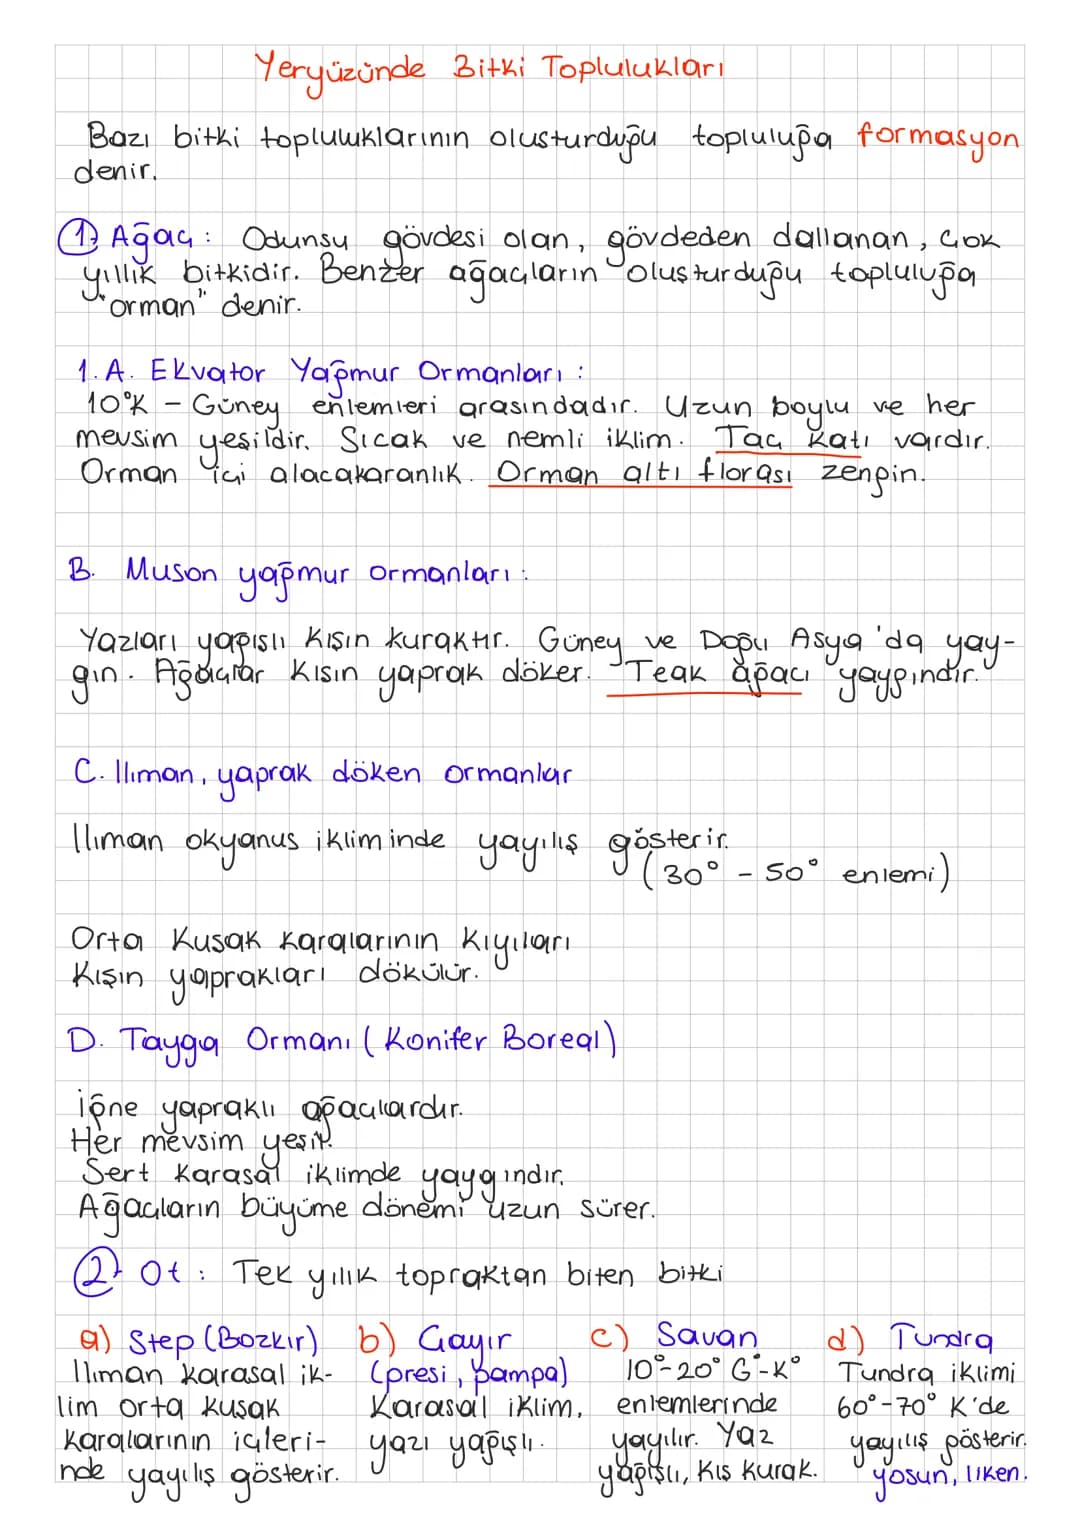 Yeryüzünde Bitki Toplulukları
Bazı bitki topluluklarının oluşturduğu topluluğa formasyon
denir.
1) Ağaç: Odunsu gövdesi olan, gövdeden dallanan, çok
yıllık bitkidir. Benzer ağaçların oluşturduğu topluluğa
"orman" denir.
1.A. Ekvator Yağmur Ormanları:
10°K - Güney enlemleri arasındadır. Uzun boylu ve her
mevsim yeşildir. Sıcak ve nemli iklim. Taç katı vardır.
Orman içi alacakaranlık. Orman altı florası zengin.
B. Muson yağmur ormanları:
Yazları yağışlı kışın kuraktır. Güney ve Doğu Asya'da yay-
gın. Ağaçlar kışın yaprak döker. Teak ağacı yaygındır.
C. Ilıman, yaprak döken ormanlar
Ilıman okyanus ikliminde yayılış gösterir.
(30° - 50° enlemi)
Orta Kuşak karalarının kıyıları
Kışın yaprakları dökülür.
D. Tayga Ormanı (Konifer Boreal)
İğne yapraklı ağaçlardır.
Her mevsim yeşil.
Sert karasal iklimde yaygındır.
Ağaçların büyüme dönemi uzun sürer.
2) Ot: Tek yıllık topraktan biten bitki
a) Step (Bozkır)
Ilıman karasal ik-
lim orta kuşak
karalarının içleri-
nde yayılış gösterir.
b) Çayır
(presi, pampa)
Karasal iklim,
yazı yağışlı.
c) Savan
10°-20° G°-K°
enlemlerinde
yayılır. Yaz
yağışlı, kış kurak.
d) Tundra
Tundra iklimi
60°-70° K'de
yayılış gösterir.
yosun, liken.